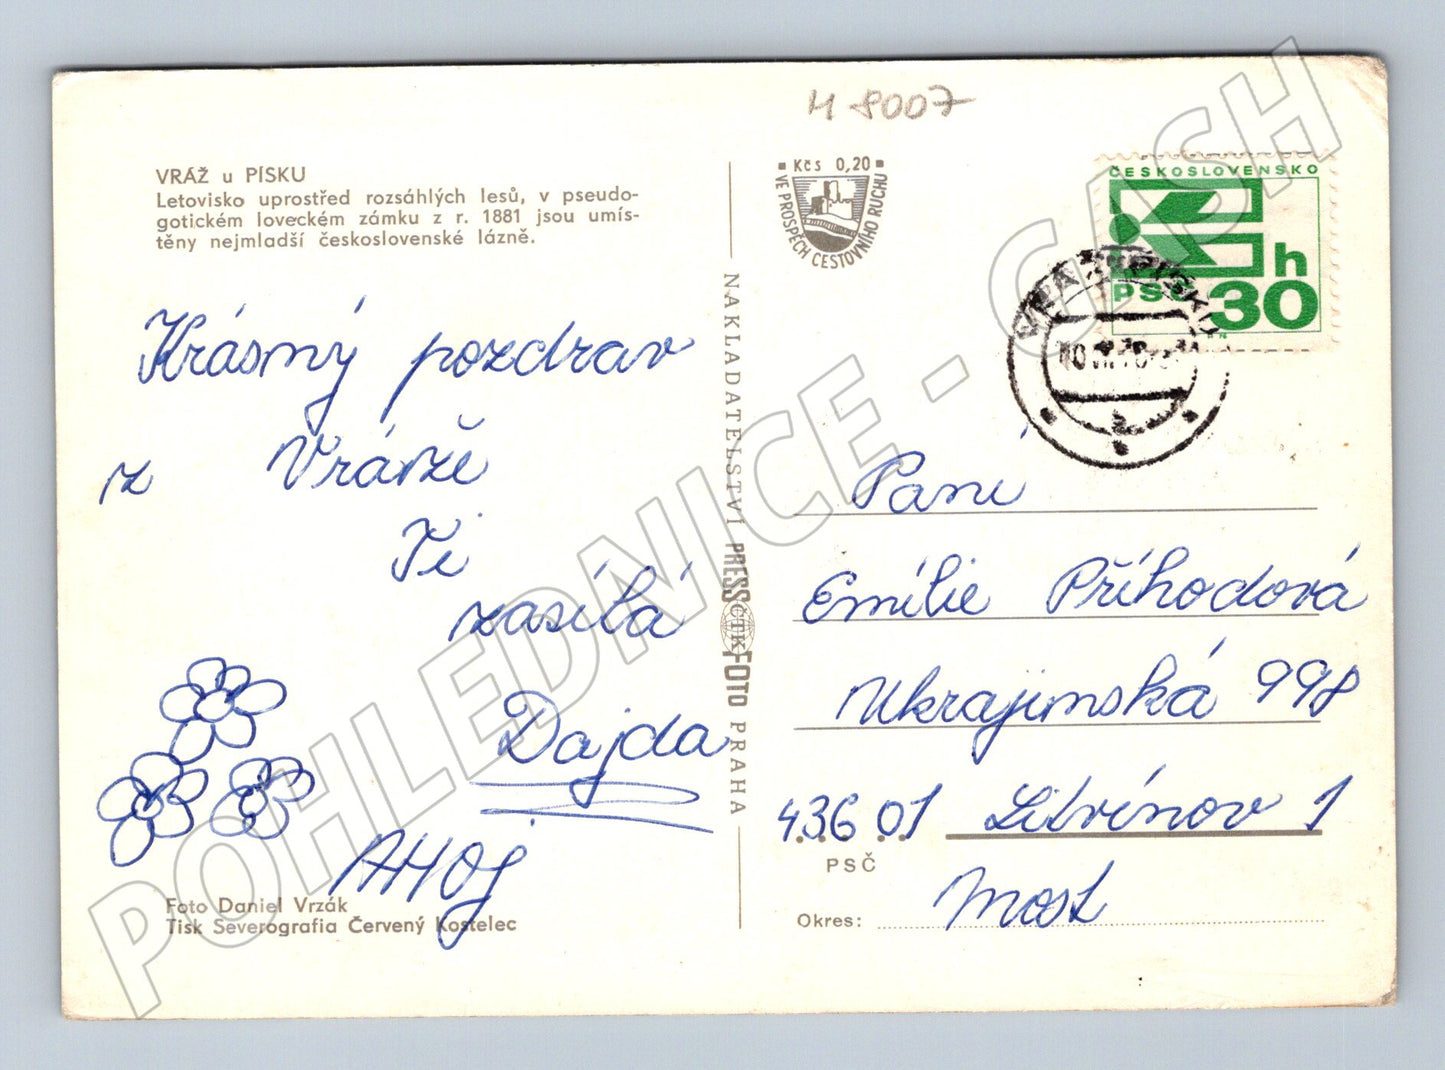 M 8007
VRÁŽ u PÍSKU
Letovisko uprostřed rozsáhlých lesů, v pseudo-
gotickém loveckém zámku z r. 1881 jsou umís-
těny nejmladší československé lázně.
Krásný pozdrav
z Vráže
Ti
zasílá
Dajda
AHOj
Foto Daniel Vrzák
Tisk Severografia Červený Kostelec
NAKLADATELSTVÍ PRESSFOTO PRAHA
ČTK
Kčs 0,20
VE PROSPĚCH CESTOVNÍHO RUCHU
ČESKOSLOVENSKO
h
PSČ 30
Paní
Emílie Příhodová
Ukrajinská 998
436 01 Litvínov 1
PSČ
Okres: Most
POHLEDNICE - CASH